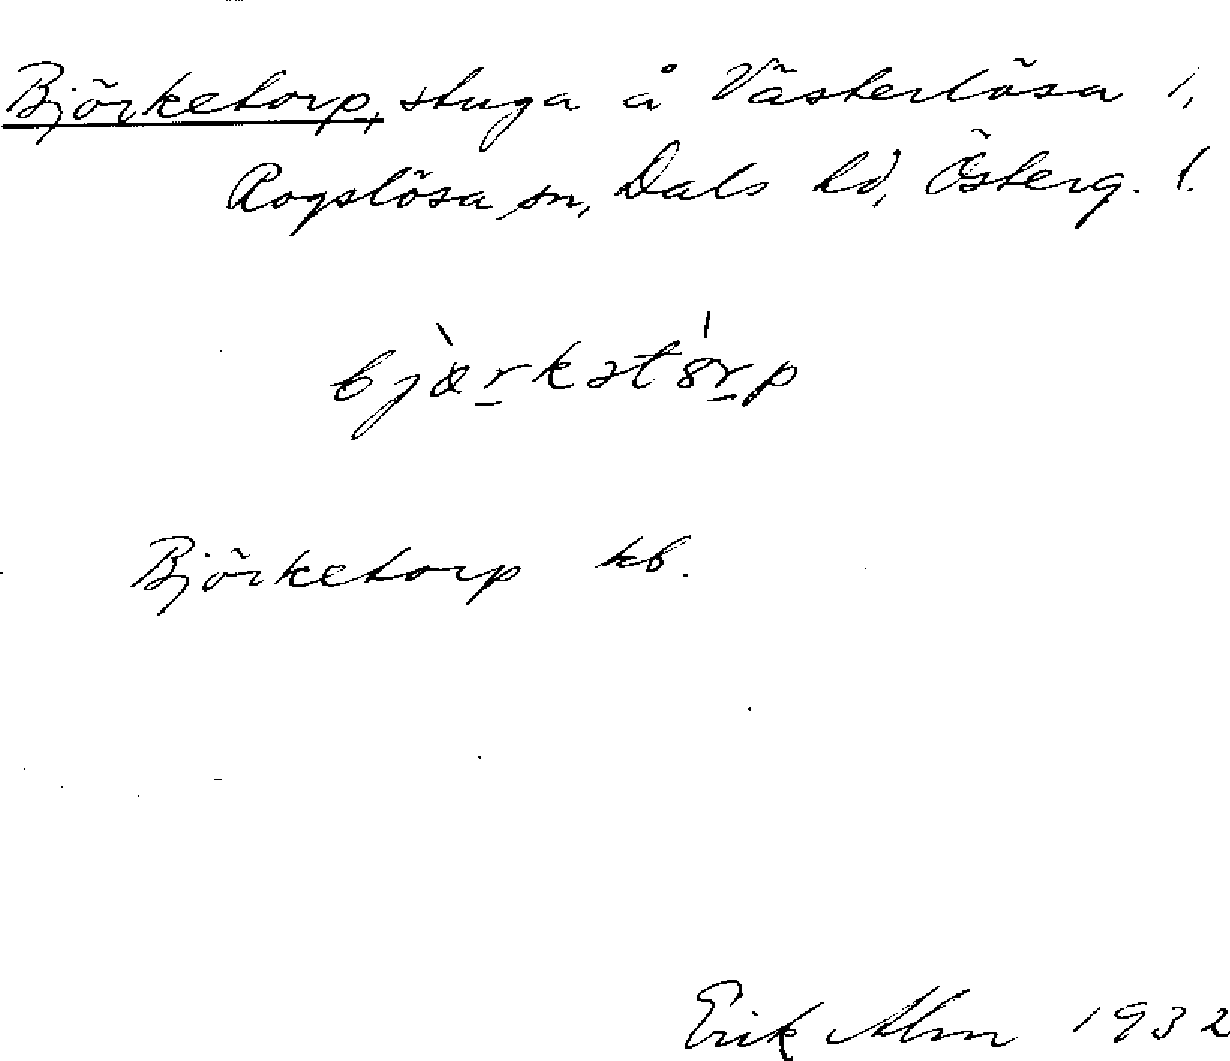 Björketorp, stuga å Västerlösa 1,
Rogslösa sn, Dals hd, Österg. l.
bjæ̀rkət8́rp
Björketorp kb.
Erik Alm 1932